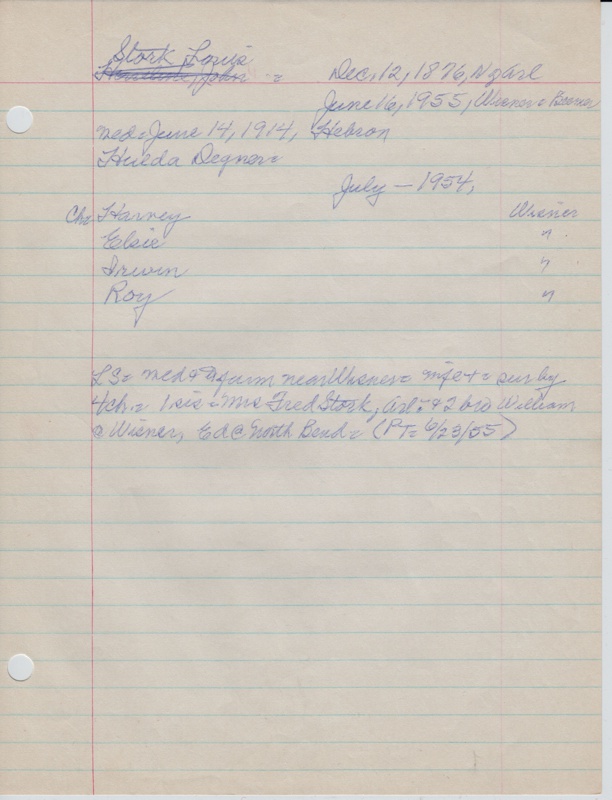 Stork, Louis
= Dec, 12, 1876, N of Arl
June 16, 1955, Wisner =
med = June 14, 1914, Hebron
Hulda Degner =
July — 1954,
Ch: Harvey Wisner
Elsie "
Irwin "
Roy "
LS = med & farm near Wisner = wife + = sur by
4 ch. = 1 sis = Mrs Fred Stork, Arl = & 2 bro William
@ Wisner, Ed @ North Bend = (PT = 6/23/55)